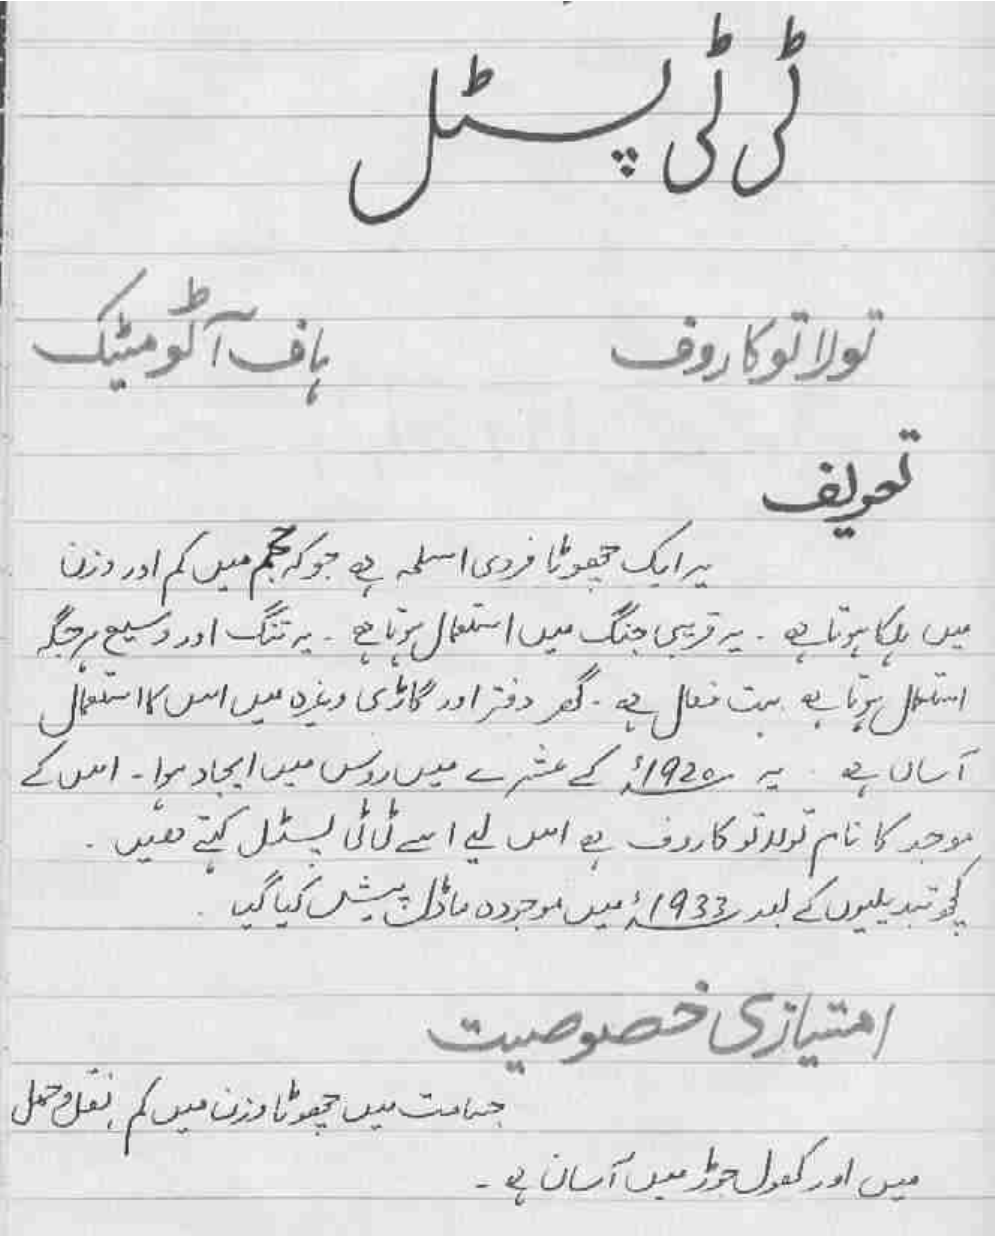 ٹی ٹی پسٹل
تولا توکاروف ہاف آٹومیٹک
تعریف
یہ ایک چھوٹا فردی اسلحہ ہے جو کہ حجم میں کم اور وزن
میں ہلکا ہوتا ہے ۔ یہ قریبی جنگ میں استعمال ہوتا ہے ۔ یہ تنگ اور وسیع ہر جگہ
استعمال ہوتا ہے بہت فعال ہے ۔ گھر دفتر اور گاڑی وغیرہ میں اس کا استعمال
آسان ہے ۔ یہ 1920ء کے عشرے میں روس میں ایجاد ہوا ۔ اس کے
موجد کا نام تولاتوکاروف ہے اس لیے اسے ٹی ٹی پسٹل کہتے ھیں ۔
کچھ تبدیلیوں کے بعد 1933ء میں موجودہ ماڈل پیش کیا گیا ۔
امتیازی خصوصیت
جسامت میں چھوٹا وزن میں کم نقل و حمل
میں اور کھول جوڑ میں آسان ہے ۔